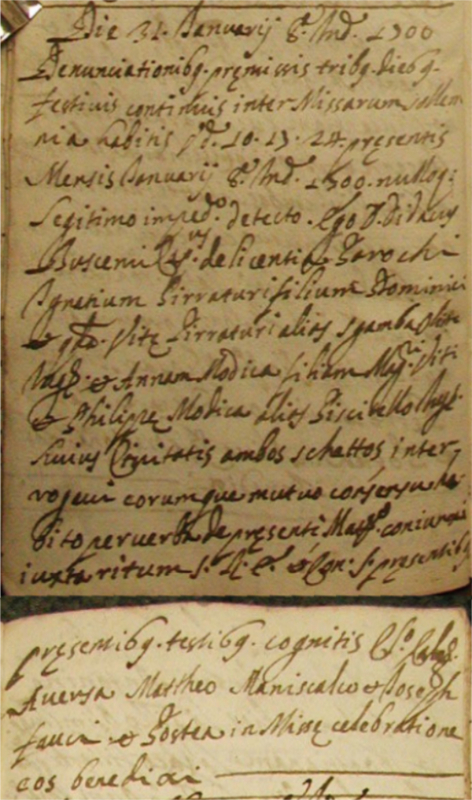 Die 31. Januarij 8.ę Ind. 1700
Denunciationibq. pręmissis tribq. diebq.
festivis continuis inter Missarum sollem
nia habitis pd. 10. 17. 24. pręsentis
Mensis Januarij 8.ę Ind. 1700. nulloq;
legitimo imped.o detecto. Ego D. Didacus
Buscemi Cap.us de licentia Parochi
Ignatium Pirraturi filium Dominici
et qd. Vitę Pirraturi alias sgamba
et Annam Modica filiam Mag.ri Viti
et Philippę Modica alias Piscitello
huius Civitatis ambos schettos inter
rogavi eorumque mutuo consensu ha
bito per verba de pręsenti Mat.o coniunxi
iuxta ritum S. R. E. et Con: T. pręsentibq
pręsentibq. testibq. cognitis Cl.o
Aversa Mattheo Maniscalco et Joseph
fauci et Postea in Missę celebratione
eos benedixi